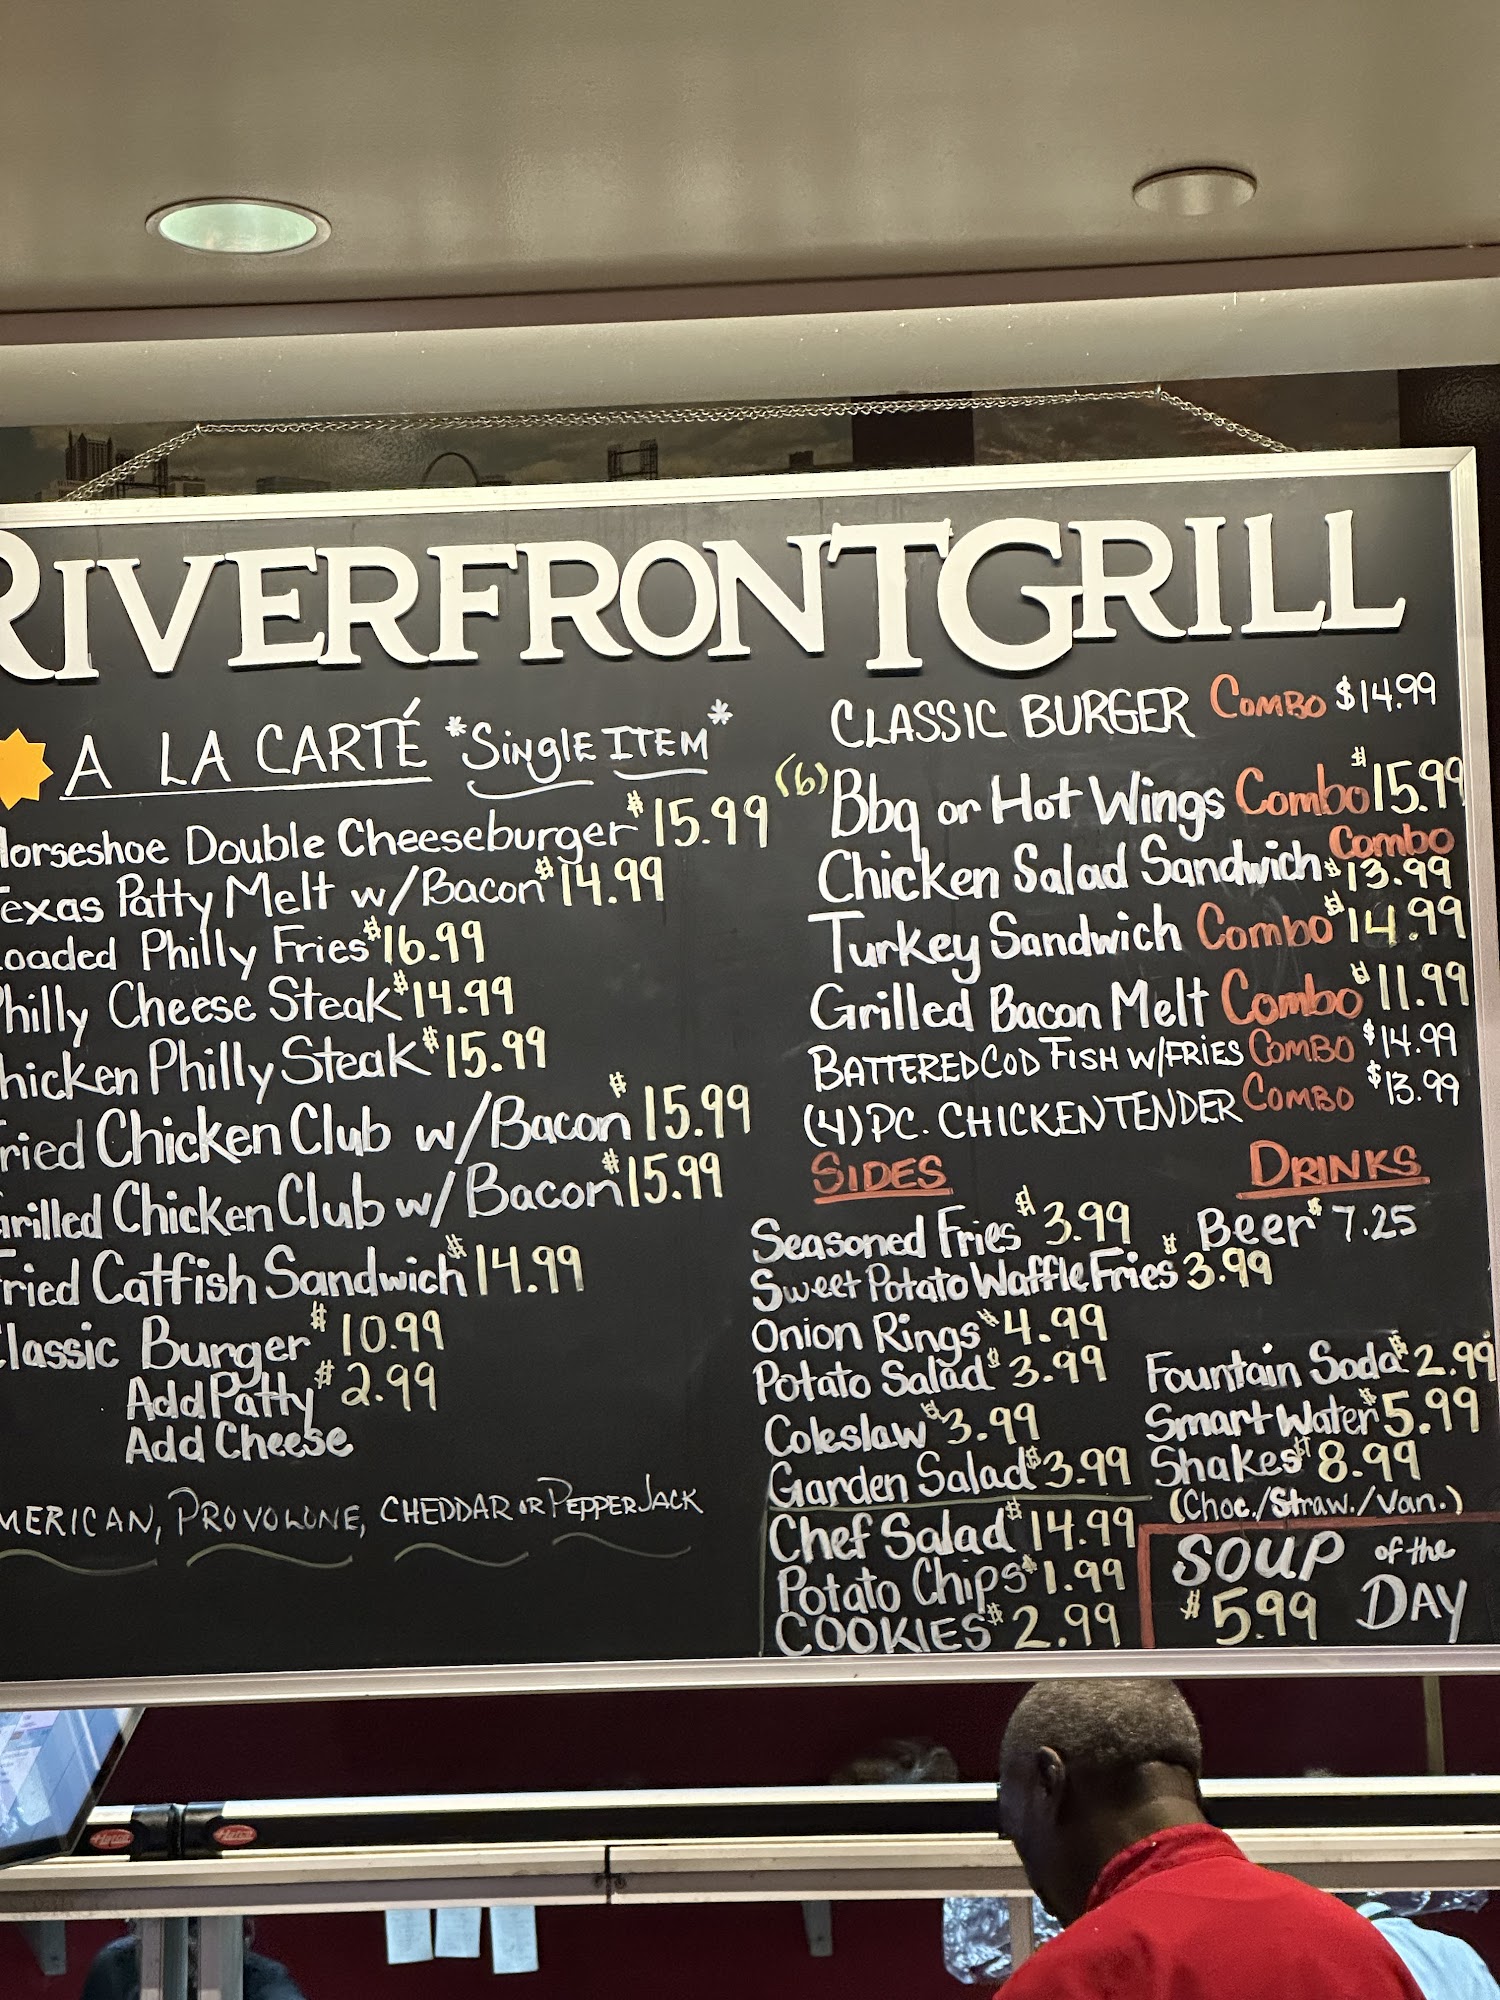 RIVERFRONTGRILL
A LA CARTÉ *Single ITEM*
Horseshoe Double Cheeseburger $15.99
Texas Patty Melt w/Bacon $14.99
Loaded Philly Fries $16.99
Philly Cheese Steak $14.99
Chicken Philly Steak $15.99
Fried Chicken Club w/Bacon $15.99
Grilled Chicken Club w/Bacon $15.99
Fried Catfish Sandwich $14.99
Classic Burger $10.99
Add Patty $2.99
Add Cheese
AMERICAN, PROVOLONE, CHEDDAR OR PEPPER JACK
CLASSIC BURGER COMBO $14.99
(6) Bbq or Hot Wings Combo $15.99
Chicken Salad Sandwich Combo $13.99
Turkey Sandwich Combo $14.99
Grilled Bacon Melt Combo $11.99
BATTERED COD FISH W/FRIES COMBO $14.99
(4) PC. CHICKEN TENDER COMBO $13.99
SIDES
Seasoned Fries $3.99
Sweet Potato Waffle Fries $3.99
Onion Rings $4.99
Potato Salad $3.99
Coleslaw $3.99
Garden Salad $3.99
Chef Salad $14.99
Potato Chips $1.99
COOKIES $2.99
DRINKS
Beer $7.25
Fountain Soda $2.99
Smart Water $5.99
Shakes $8.99
(Choc./Straw./Van.)
SOUP of the DAY
$5.99
Hatco
Hatco